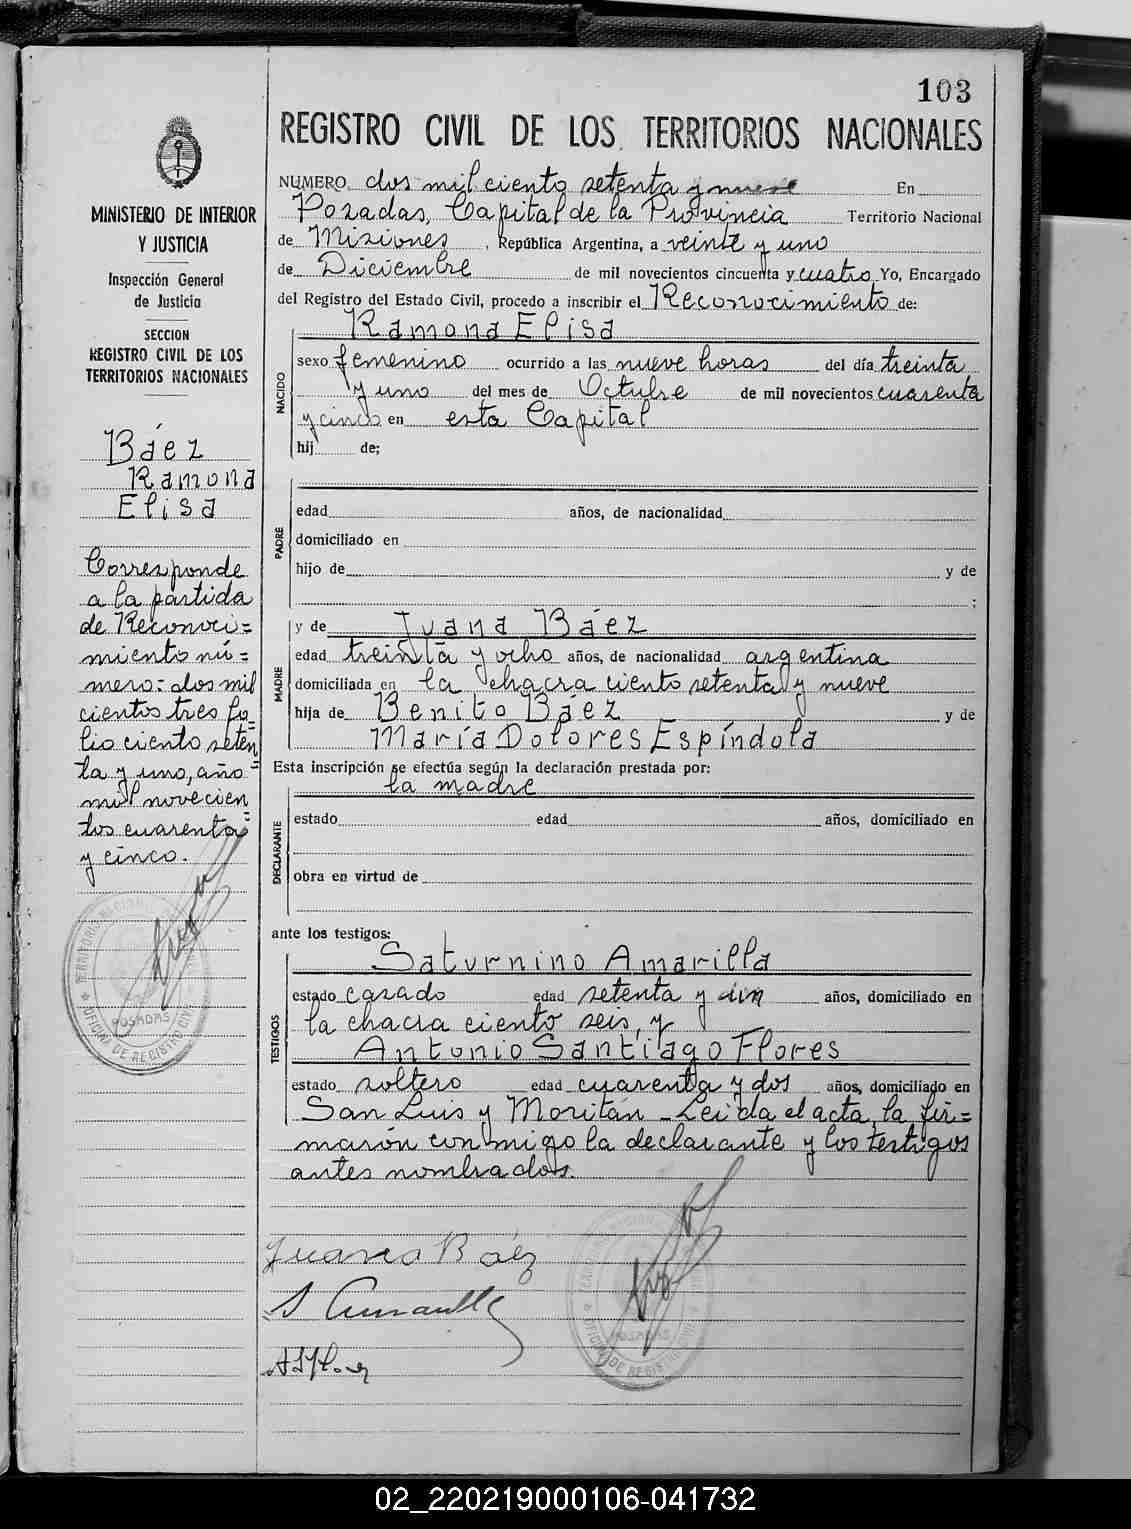 103
REGISTRO CIVIL DE LOS TERRITORIOS NACIONALES
NUMERO dos mil ciento setenta y nueve En
Posadas, Capital de la Provincia Territorio Nacional
de Misiones, República Argentina, a veinte y uno
de Diciembre de mil novecientos cincuenta y cuatro Yo, Encargado
del Registro del Estado Civil, procedo a inscribir el Reconocimiento de:
Ramona Elisa
NACIDO
sexo femenino ocurrido a las nueve horas del día treinta
y uno del mes de Octubre de mil novecientos cuarenta
y cinco en esta Capital
hij de;
PADRE
edad años, de nacionalidad
domiciliado en
hijo de y de
;
y de Juana Báez
MADRE
edad treinta y ocho años, de nacionalidad argentina
domiciliada en la chacra ciento setenta y nueve
hija de Benito Báez y de
María Dolores Espíndola
Esta inscripción se efectúa según la declaración prestada por:
la madre
DECLARANTE
estado edad años, domiciliado en
obra en virtud de
ante los testigos:
Saturnino Amarilla
TESTIGOS
estado casado edad setenta y un años, domiciliado en
la chacra ciento seis, y
Antonio Santiago Flores
estado soltero edad cuarenta y dos años, domiciliado en
San Luis y Moritán - Leída el acta, la fir=
maron conmigo la declarante y los testigos
antes nombrados.
Juana Báez
S Amarilla
MINISTERIO DE INTERIOR
Y JUSTICIA
Inspección General
de Justicia
SECCION
REGISTRO CIVIL DE LOS
TERRITORIOS NACIONALES
Báez
Ramona
Elisa
Corresponde
a la partida
de Reconoci=
miento nú=
mero: dos mil
cientos tres fo_
lio ciento seten=
ta y uno, año
mil novecien=
tos cuarenta
y cinco.
POSADAS
OFICINA DE REGISTRO CIVIL
POSADAS
OFICINA DE REGISTRO CIVIL
02_220219000106-041732